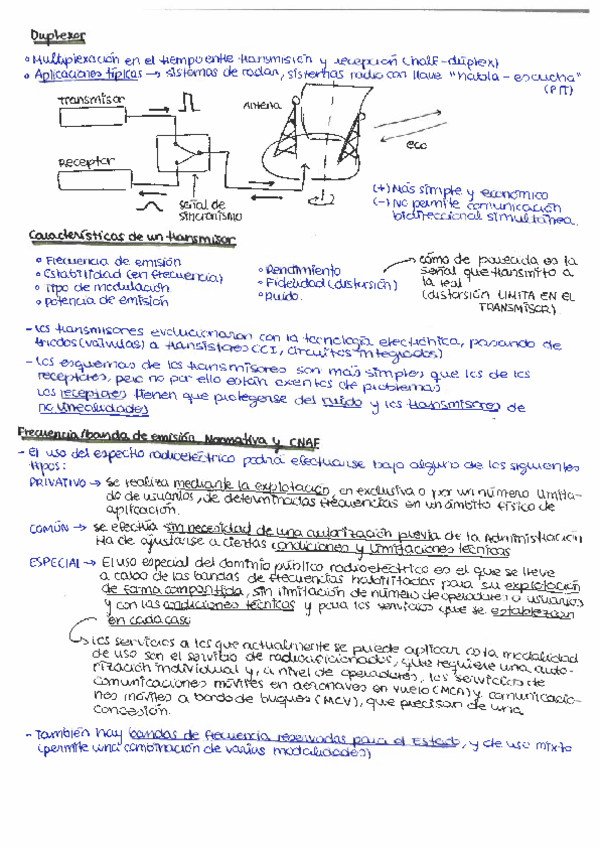 Duplexor
• Multiplexación en el tiempo entre transmisión y recepción (half-duplex)
• Aplicaciones típicas → sistemas de radar, sistemas radio con llave "habla-escucha"
(PTT)
Transmisor
Antena
eco
Receptor
señal de
sincronismo
(+) Más simple y económico
(-) No permite comunicación
bidireccional simultánea.
Características de un transmisor
• Frecuencia de emisión
• Estabilidad (en frecuencia)
• Tipo de modulación
• Potencia de emisión
• Rendimiento
• Fidelidad (distorsión)
• Ruido.
→ cómo de parecida es la
señal que transmito a
la real
(distorsión LIMITA EN EL
TRANSMISOR)
- Los transmisores evolucionaron con la tecnología electrónica, pasando de
triodos (válvulas) a transistores (CI, circuitos integrados)
- Los esquemas de los transmisores son más simples que los de los
receptores, pero no por ello están exentos de problemas
Los receptores tienen que protegerse del ruido y los transmisores de
no linealidades
Frecuencia/banda de emisión. Normativa y CNAF
- El uso del espectro radioeléctrico podrá efectuarse bajo alguno de los siguientes
tipos:
PRIVATIVO → Se realiza mediante la explotación, en exclusiva o por un número limita-
do de usuarios, de determinadas frecuencias en un ámbito físico de
aplicación.
COMÚN → se efectúa sin necesidad de una autorización previa de la Administración
Ha de ajustarse a ciertas condiciones y limitaciones técnicas
ESPECIAL → El uso especial del dominio público radioeléctrico es el que se lleve
a cabo de las bandas de frecuencias habilitadas para su explotación
de forma compartida, sin limitación de número de operadores o usuarios
y con las condiciones técnicas y para los servicios que se establezcan
en cada caso
→ Los servicios a los que actualmente se puede aplicar esta modalidad
de uso son el servicio de radioaficionados, que requiere una auto-
rización individual y, a nivel de operadores, los servicios de
comunicaciones móviles en aeronaves en vuelo (MCA) y comunicacio-
nes móviles a bordo de buques (MCV), que precisan de una
concesión.
- También hay bandas de frecuencia reservadas para el Estado, y de uso mixto
(permite una combinación de varias modalidades)